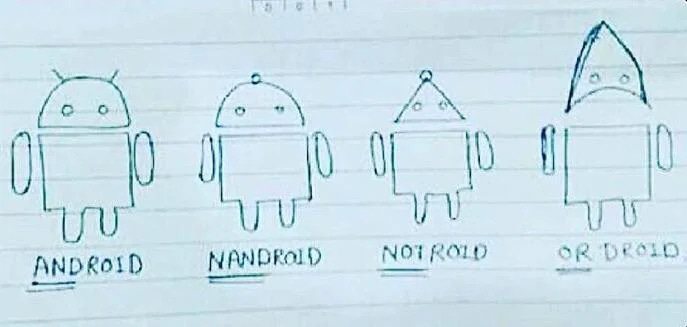 ANDROID NANDROID NOTROID OR DROID